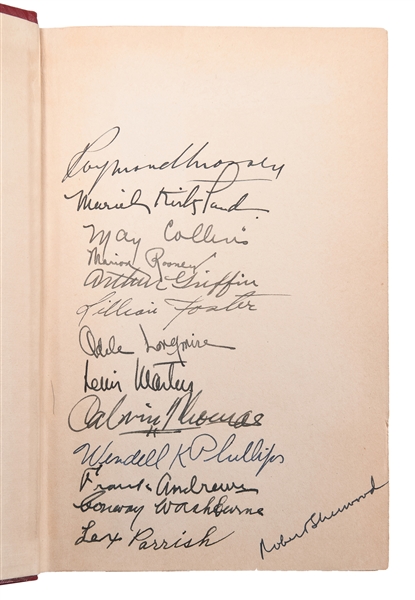 Raymond Massey
Muriel Kirkland
May Collins
Marion Rooney
Arthur Griffin
Lillian Foster
Adele Longmire
Lewis
Calvin Thomas
Wendell K Phillips
Frank Andrews
Conway Washburne
Lex Parrish
Robert Sherwood